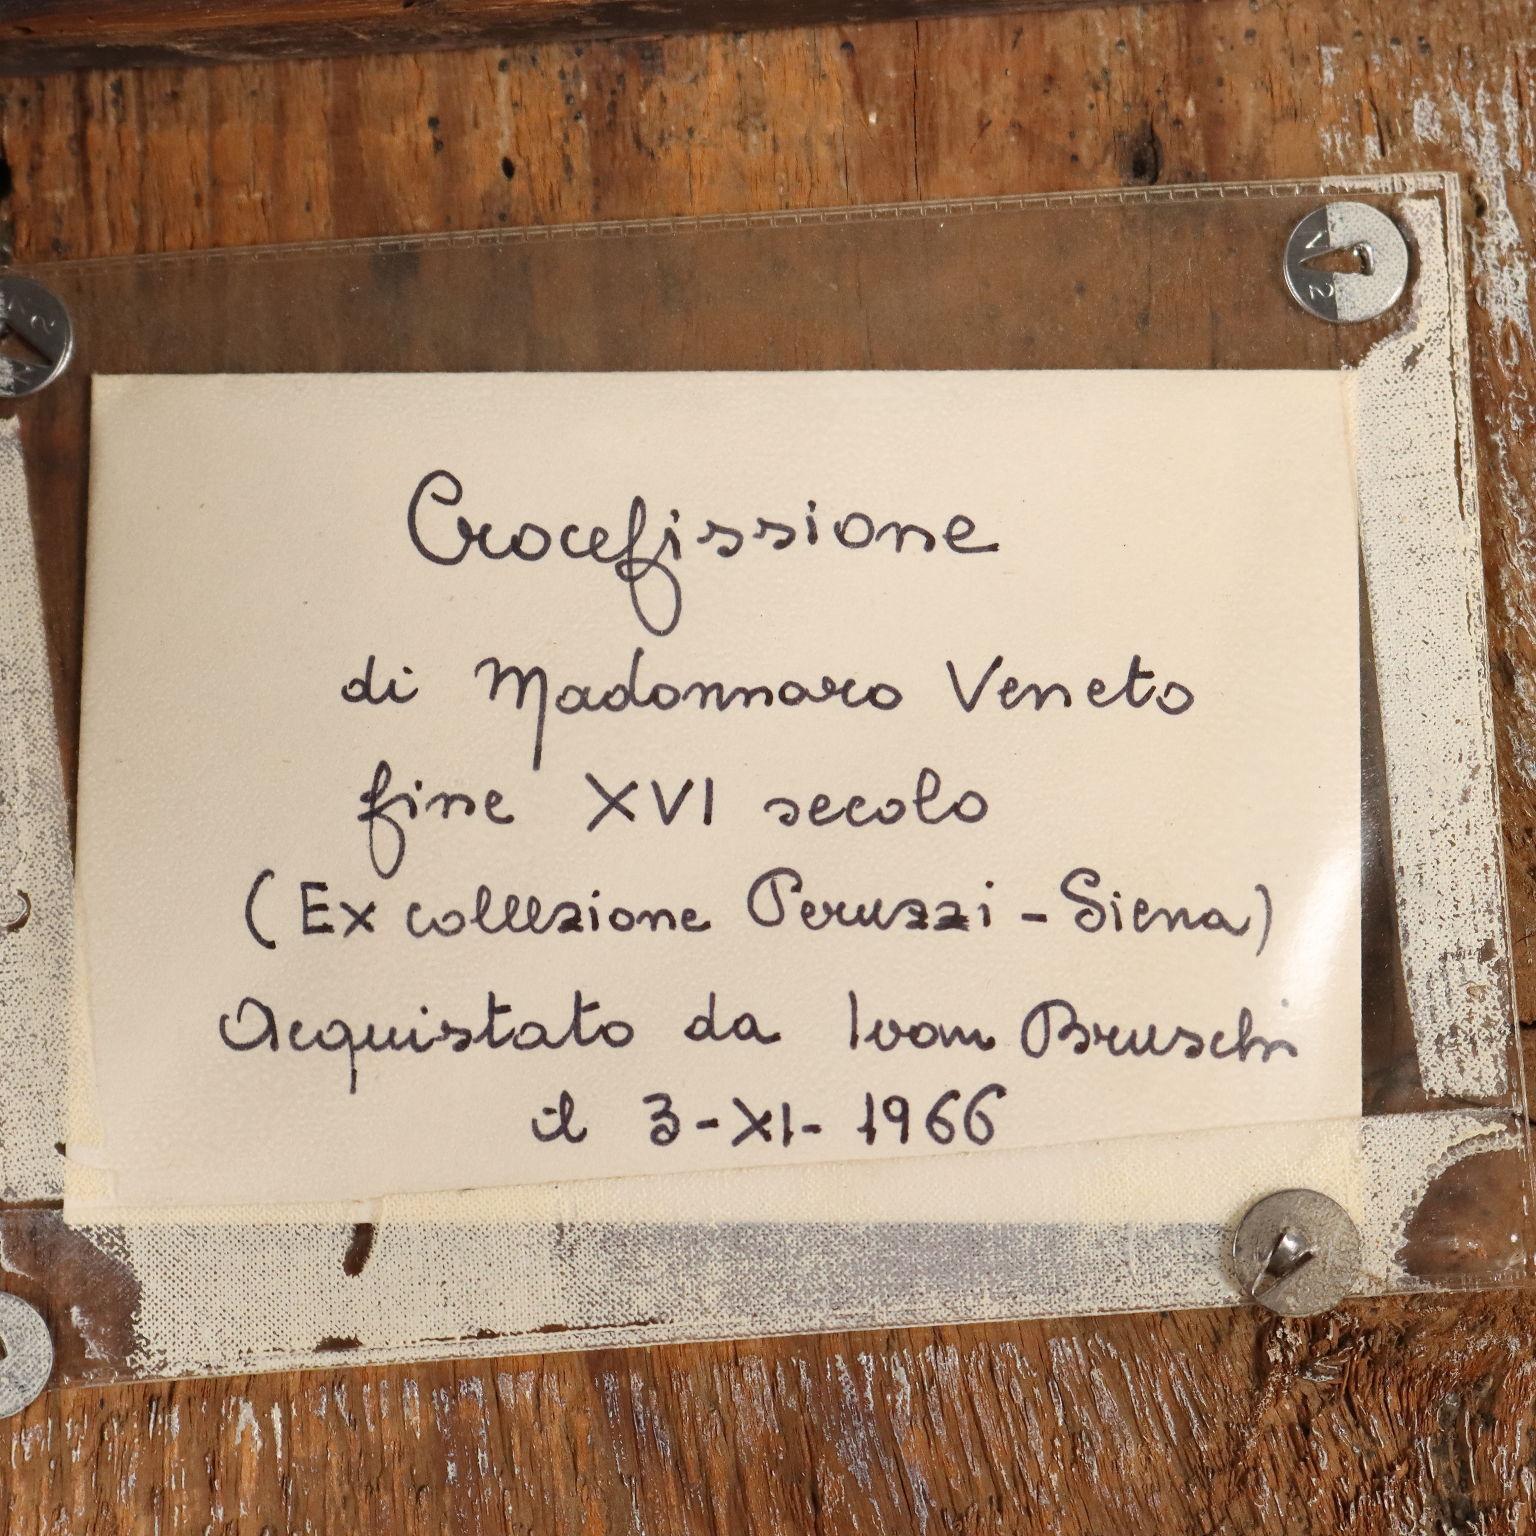 Crocefissione
di Madonnaro Veneto
fine XVI secolo
(Ex collezione Peruzzi - Siena)
Acquistato da Ivan Bruschi
il 3-XI-1966